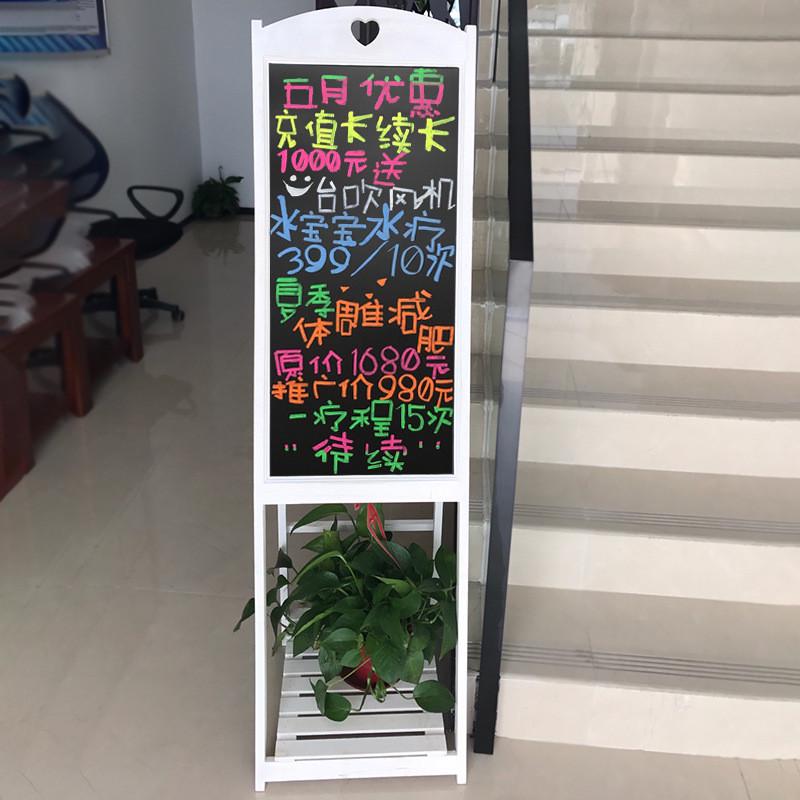 五月优惠
充值卡续卡
1000元送
台吹风机
水宝宝水疗
399/10次
夏季
体雕减肥
原价1680元
推广价980元
一疗程15次
"待续"